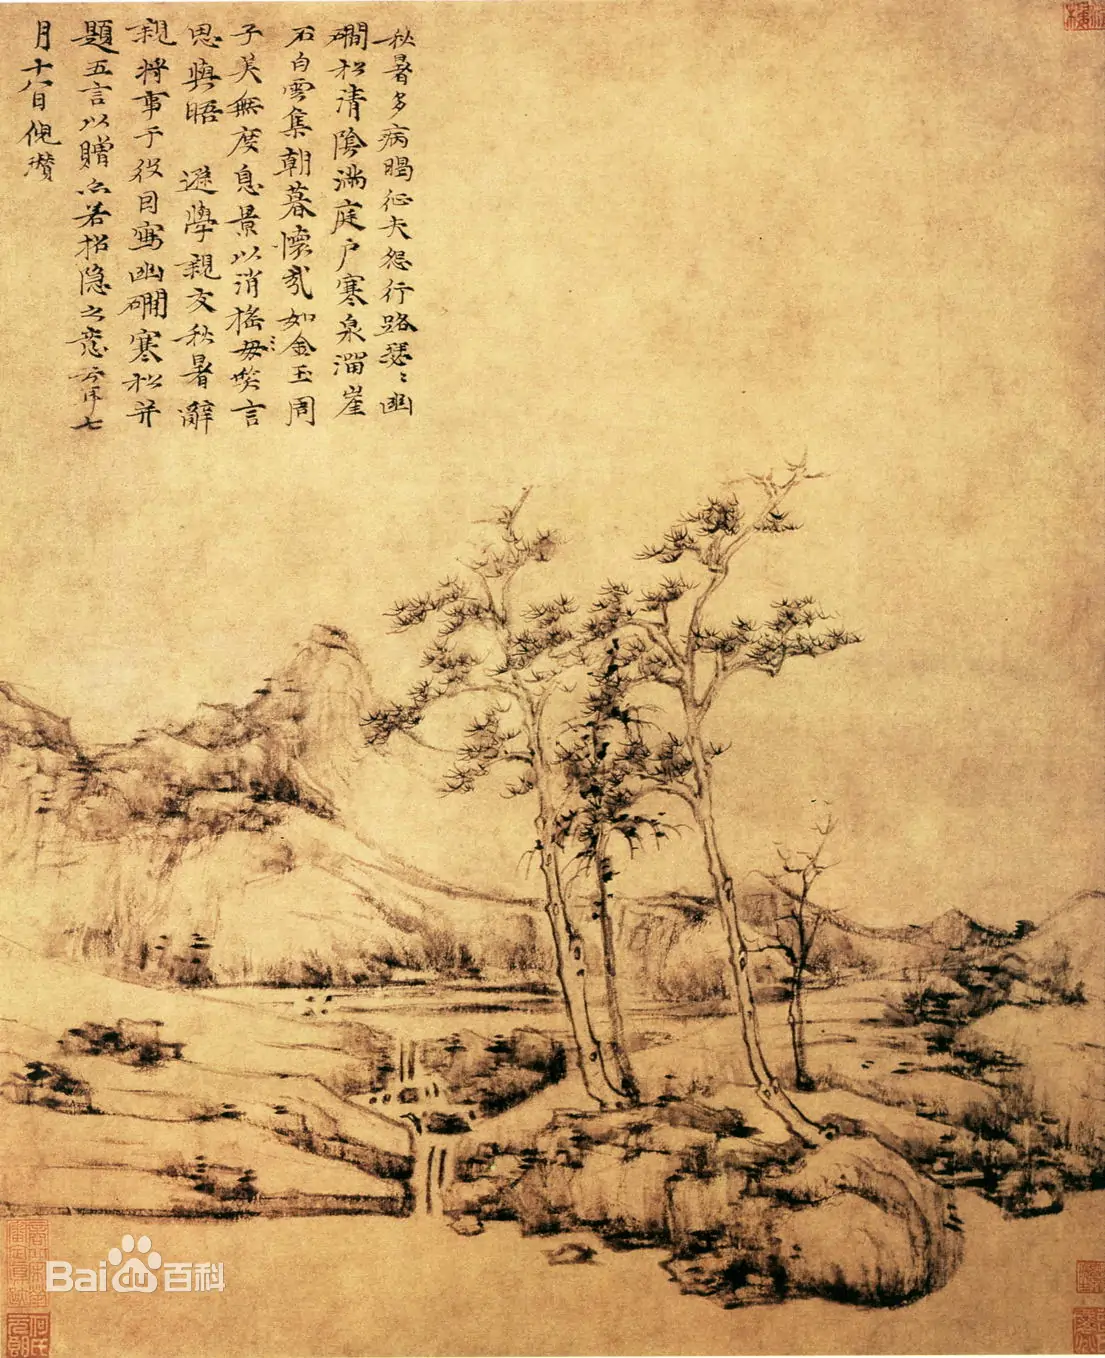 秋暑多病暍征夫怨行路瑟〻幽
磵松清陰滿庭戶寒泉溜崖
石白雲集朝暮懷哉如金玉周
子美無度息景以消搖毋咲言
思與晤 遜學親友秋暑辭
親將事于役因寫幽磵寒松并
題五言以贈亦若招隱之意 七
月十八日倪瓚
Bai百科